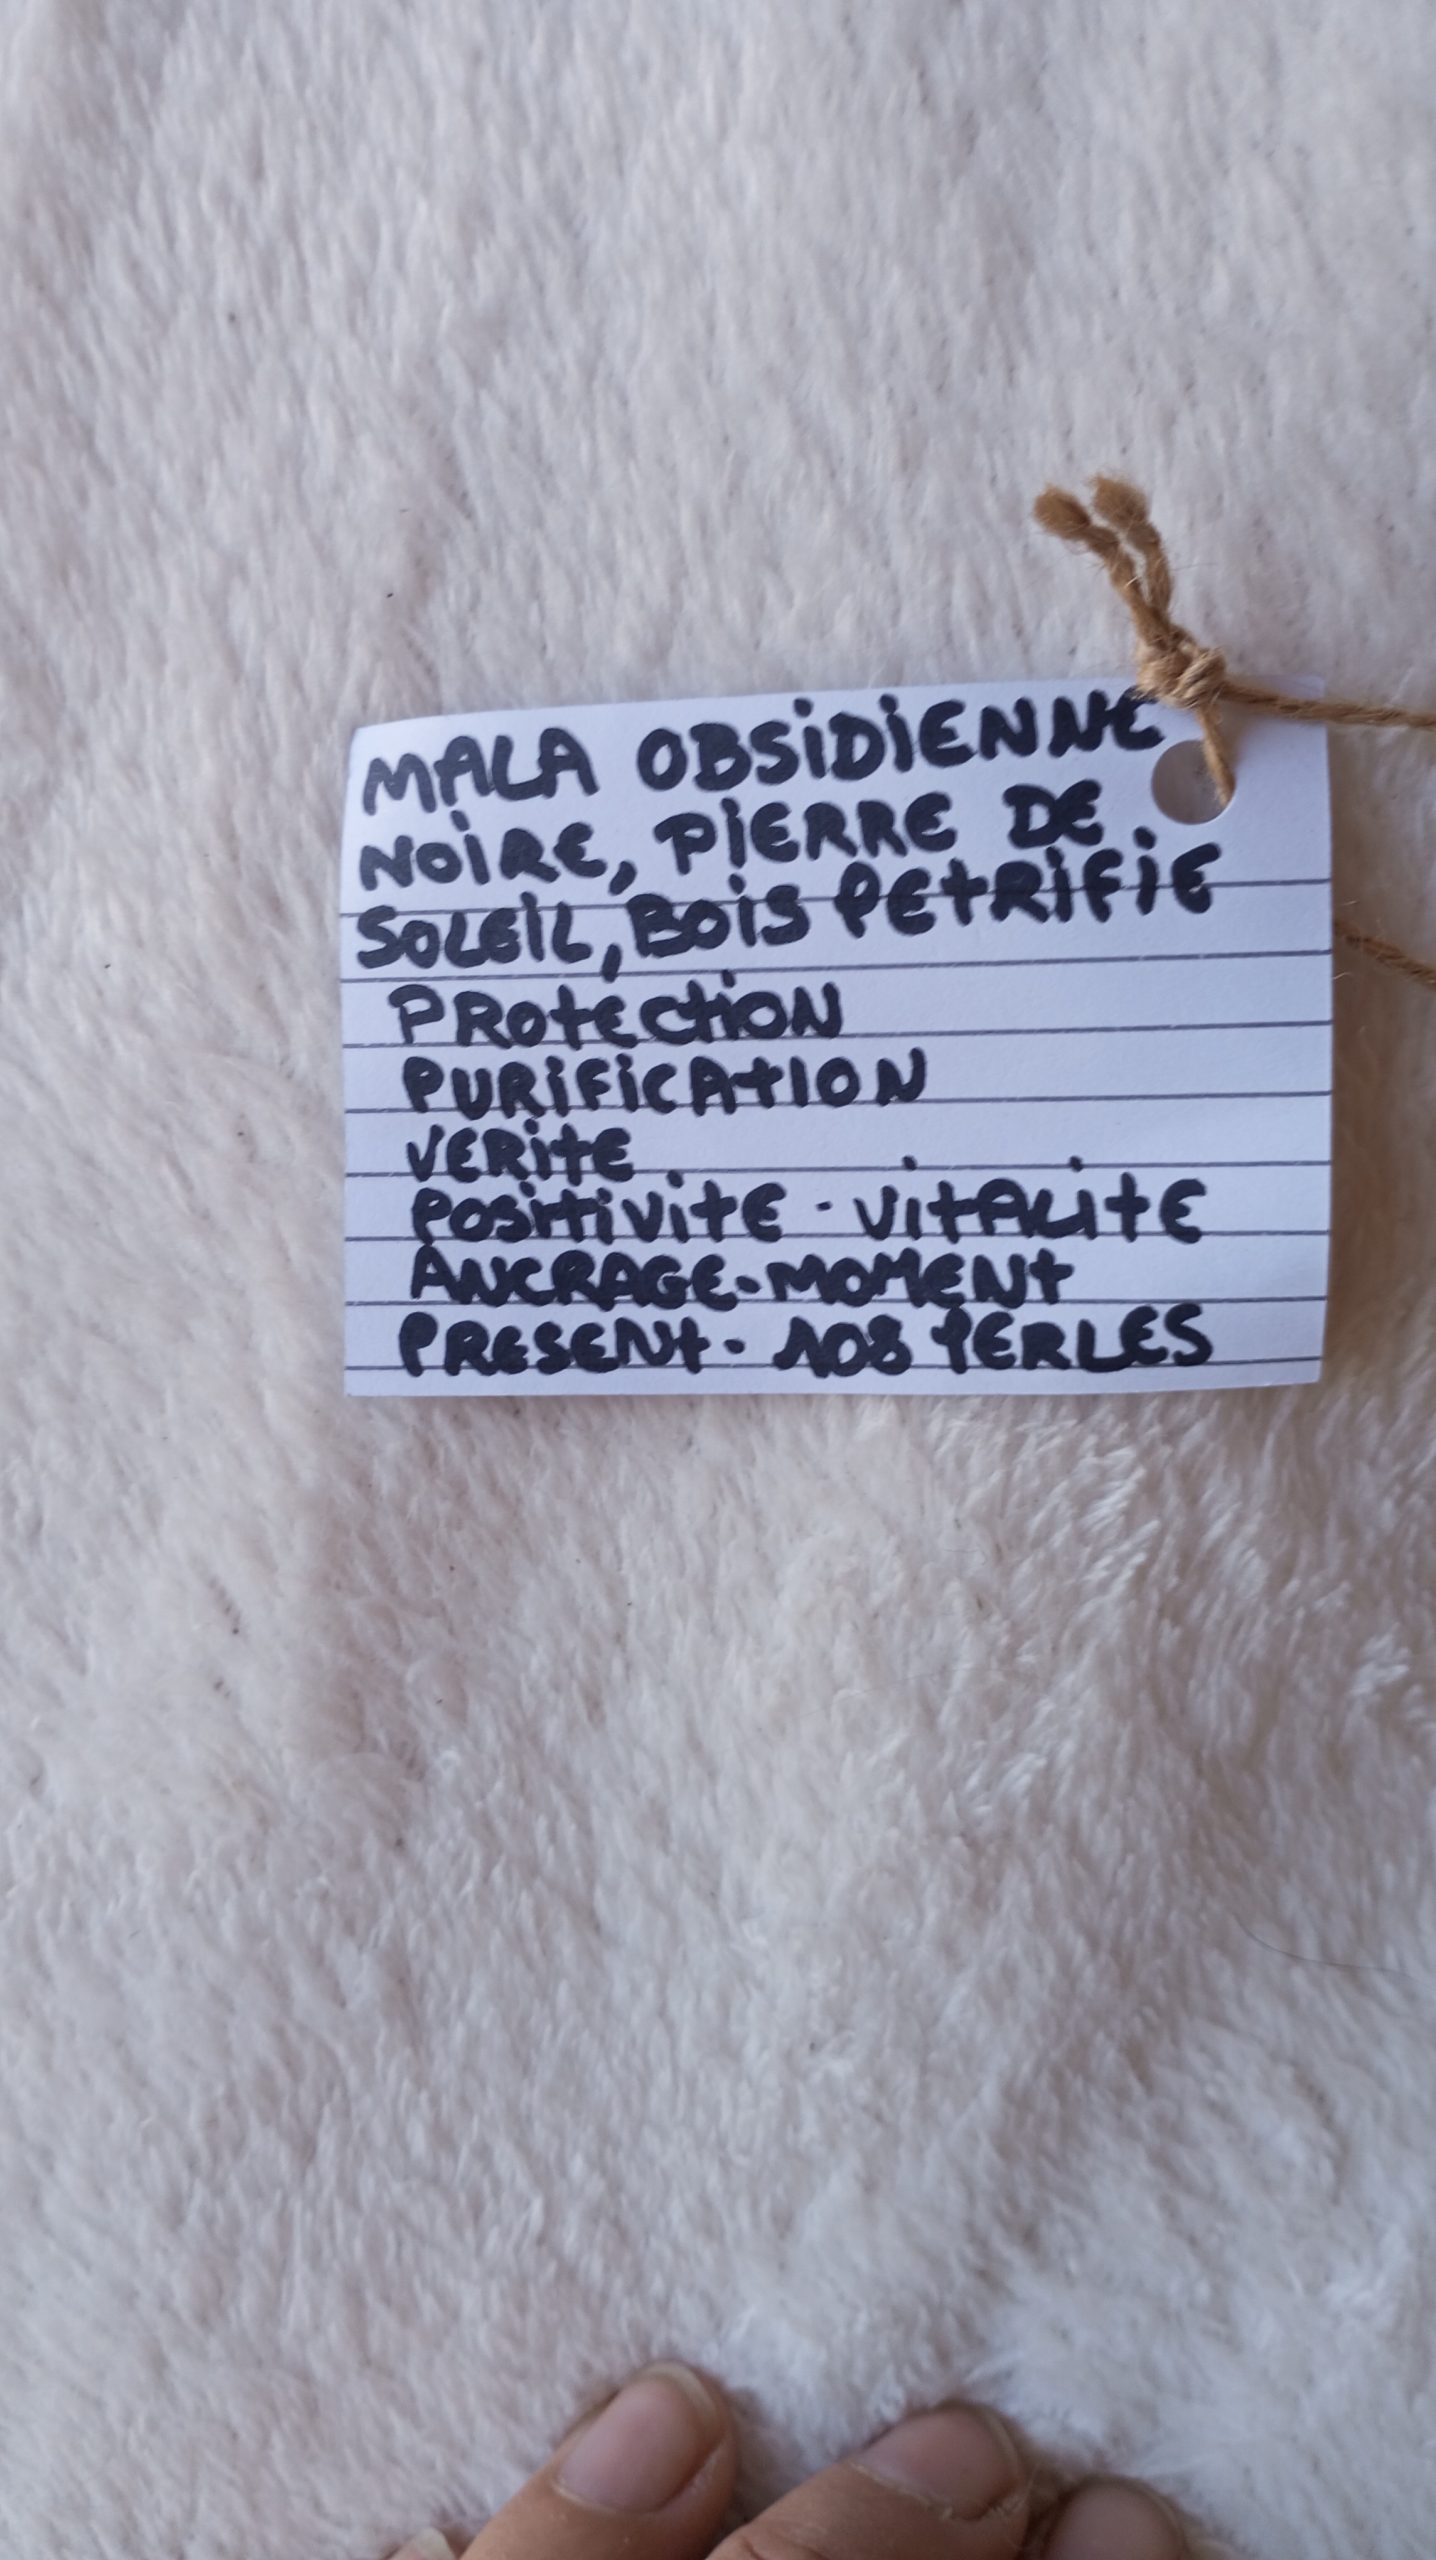 MALA OBSiDiENNE
NOiRE, PiERRE DE
SOLEiL, BOiS PETRiFiE
PROTECTiON
PURiFiCATION
VERiTE
POSiTiViTE - ViTALiTE
ANCRAGE - MOMENT
PRESENT - 108 PERLES